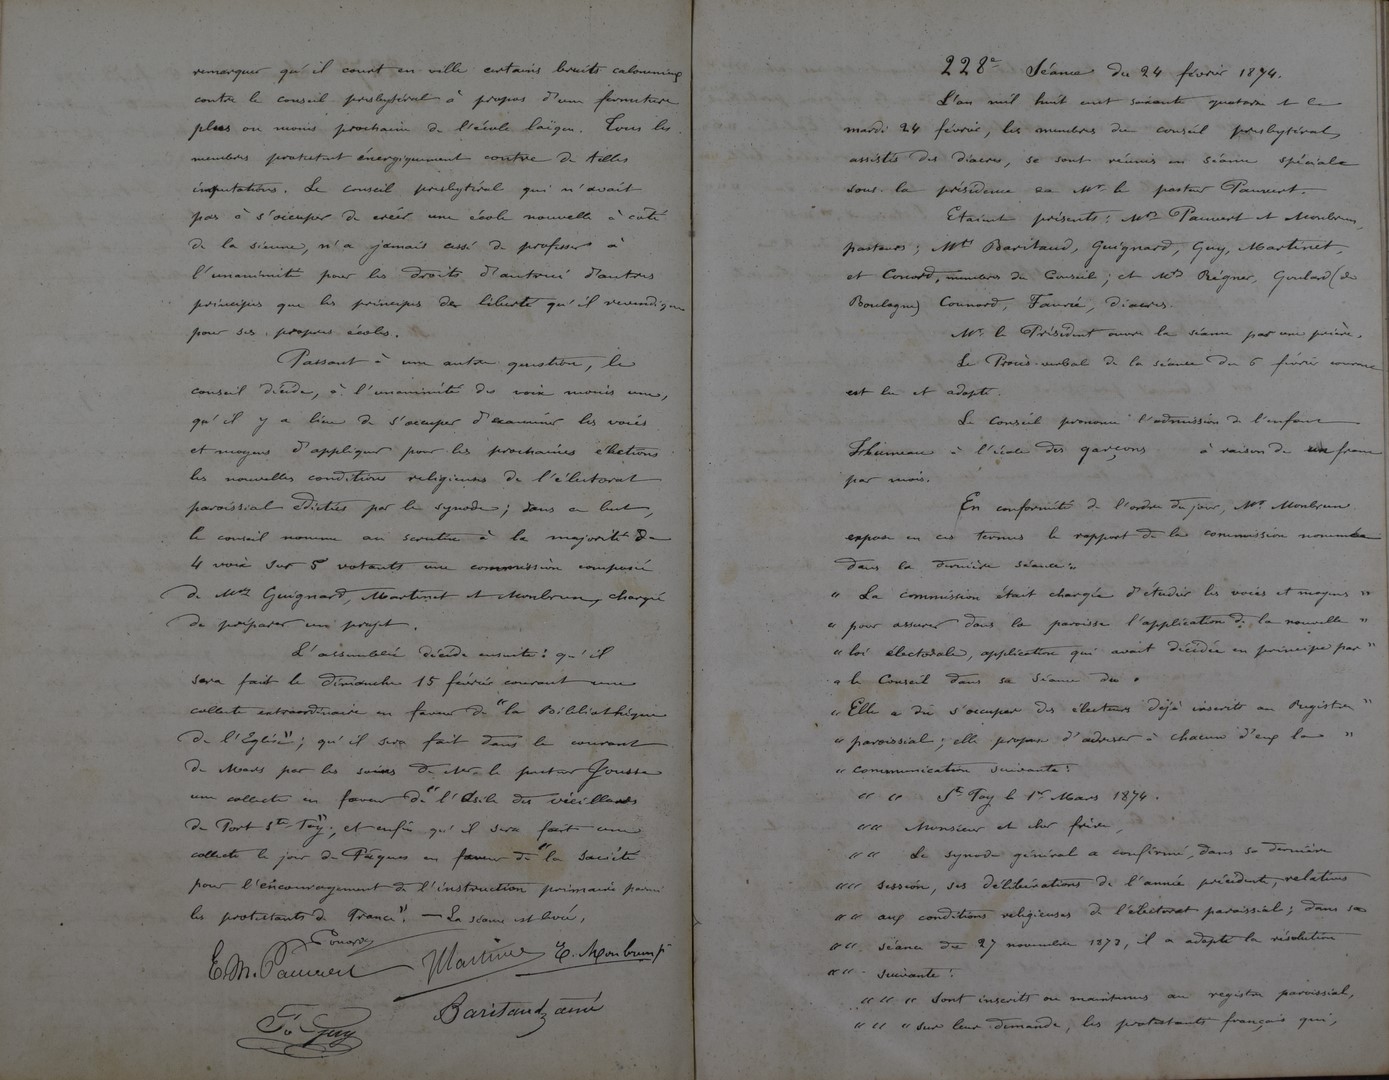 remarquer qu'il court en ville certains bruits calomnieux
contre le conseil presbytéral à propos d'une fermeture
plus ou moins prochaine de l'école laïque. Tous les
membres protestent énergiquement contre de telles
imputations. Le conseil presbytéral qui n'avait
pas à s'occuper de créer une école nouvelle à côté
de la sienne, n'a jamais cessé de professer à
l'unanimité pour les droits d'autrui d'autres
principes que les principes de liberté qu'il revendique
pour ses propres écoles.
Passant à une autre question, le
conseil décide, à l'unanimité des voix moins une,
qu'il y a lieu de s'occuper d'examiner les voies
et moyens d'appliquer pour les prochaines élections
les nouvelles conditions religieuses de l'électorat
paroissial édictées par le synode ; dans ce but,
le conseil nomme au scrutin à la majorité de
4 voix sur 5 votants une commission composée
de Mrs Guignard, Martinet et Monbrun, chargée
de préparer un projet.
L'assemblée décide ensuite : qu'il
sera fait le dimanche 15 février courant une
collecte extraordinaire en faveur de "la Bibliothèque
de l'Eglise" ; qu'il sera fait dans le courant
de Mars par les soins de Mr. le pasteur Jousse
une collecte en faveur de "l'Asile des vieillards
de Port Ste Foy", et enfin qu'il sera fait une
collecte le jour de Pâques en faveur de "la société
pour l'encouragement de l'instruction primaire parmi
les protestants de France". — La séance est levée,
Conord
E. M. Pauvert Martinet E. Monbrun p
Baritaud aîné
Guy
228e Séance du 24 février 1874.
L'an mil huit cent soixante quatorze et le
mardi 24 février, les membres du conseil presbytéral,
assistés des diacres, se sont réunis en séance spéciale
sous la présidence de Mr. le pasteur Pauvert.
Etaient présents : Mrs Pauvert et Monbrun,
pasteurs ; Mrs Baritaud, Guignard, Guy, Martinet,
et Conord, membres du Conseil ; et Mrs Régner, Goulard (de
Boulogne) Counord, Fauré, diacres.
Mr. le Président ouvre la séance par une prière.
Le Procès-verbal de la séance du 6 février courant
est lu et adopté.
Le Conseil prononce l'admission de l'enfant
Lhuineau à l'école des garçons à raison de un franc
par mois.
En conformité de l'ordre du jour, Mr Monbrun
expose en ces termes le rapport de la commission nommée
dans la dernière séance :
" La commission était chargée d'étudier les voies et moyens "
" pour assurer dans la paroisse l'application de la nouvelle "
" loi électorale, application qui avait décidée en principe par "
" le Conseil dans sa séance du .
" Elle a dû s'occuper des électeurs déjà inscrits au Registre "
" paroissial ; elle propose d'adresser à chacun d'eux la "
" communication suivante :
" " Ste Foy le 1er Mars 1874.
" " Monsieur et cher frère,
" " Le synode général a confirmé, dans sa dernière
" " session, ses délibérations de l'année précédente, relatives
" " aux conditions religieuses de l'électorat paroissial ; dans sa
" " séance du 27 novembre 1873, il a adopté la résolution
" " suivante :
" " " Sont inscrits ou maintenus au registre paroissial,
" " " sur leur demande, les protestants français qui,